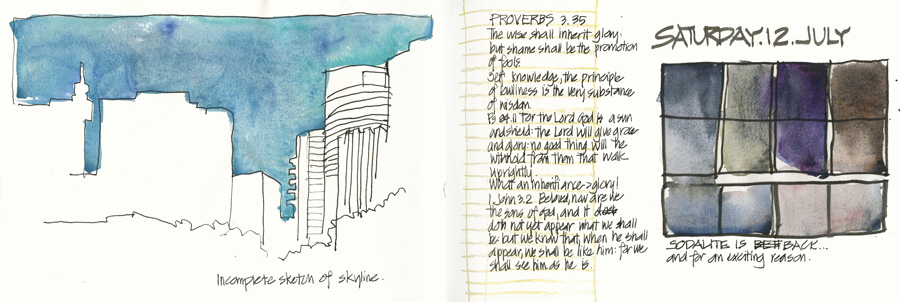 Incomplete sketch of skyline.
PROVERBS 3.35
The wise shall inherit glory:
but shame shall be the promotion
of fools.
Self knowledge, the principle
of lowliness is the very substance
of wisdom.
Ps 84.11 For the Lord God is a sun
and shield: the Lord will give grace
and glory: no good thing will He
withhold from them that walk
uprightly.
What an inheritance -> glory!
1 John 3.2 Beloved, now are we
the sons of God, and it
doth not yet appear what we shall
be: but we know that, when he shall
appear, we shall be like him: for we
shall see him as he is.
SATURDAY.12.JULY
SODALITE IS BACK...
and for an exciting reason.